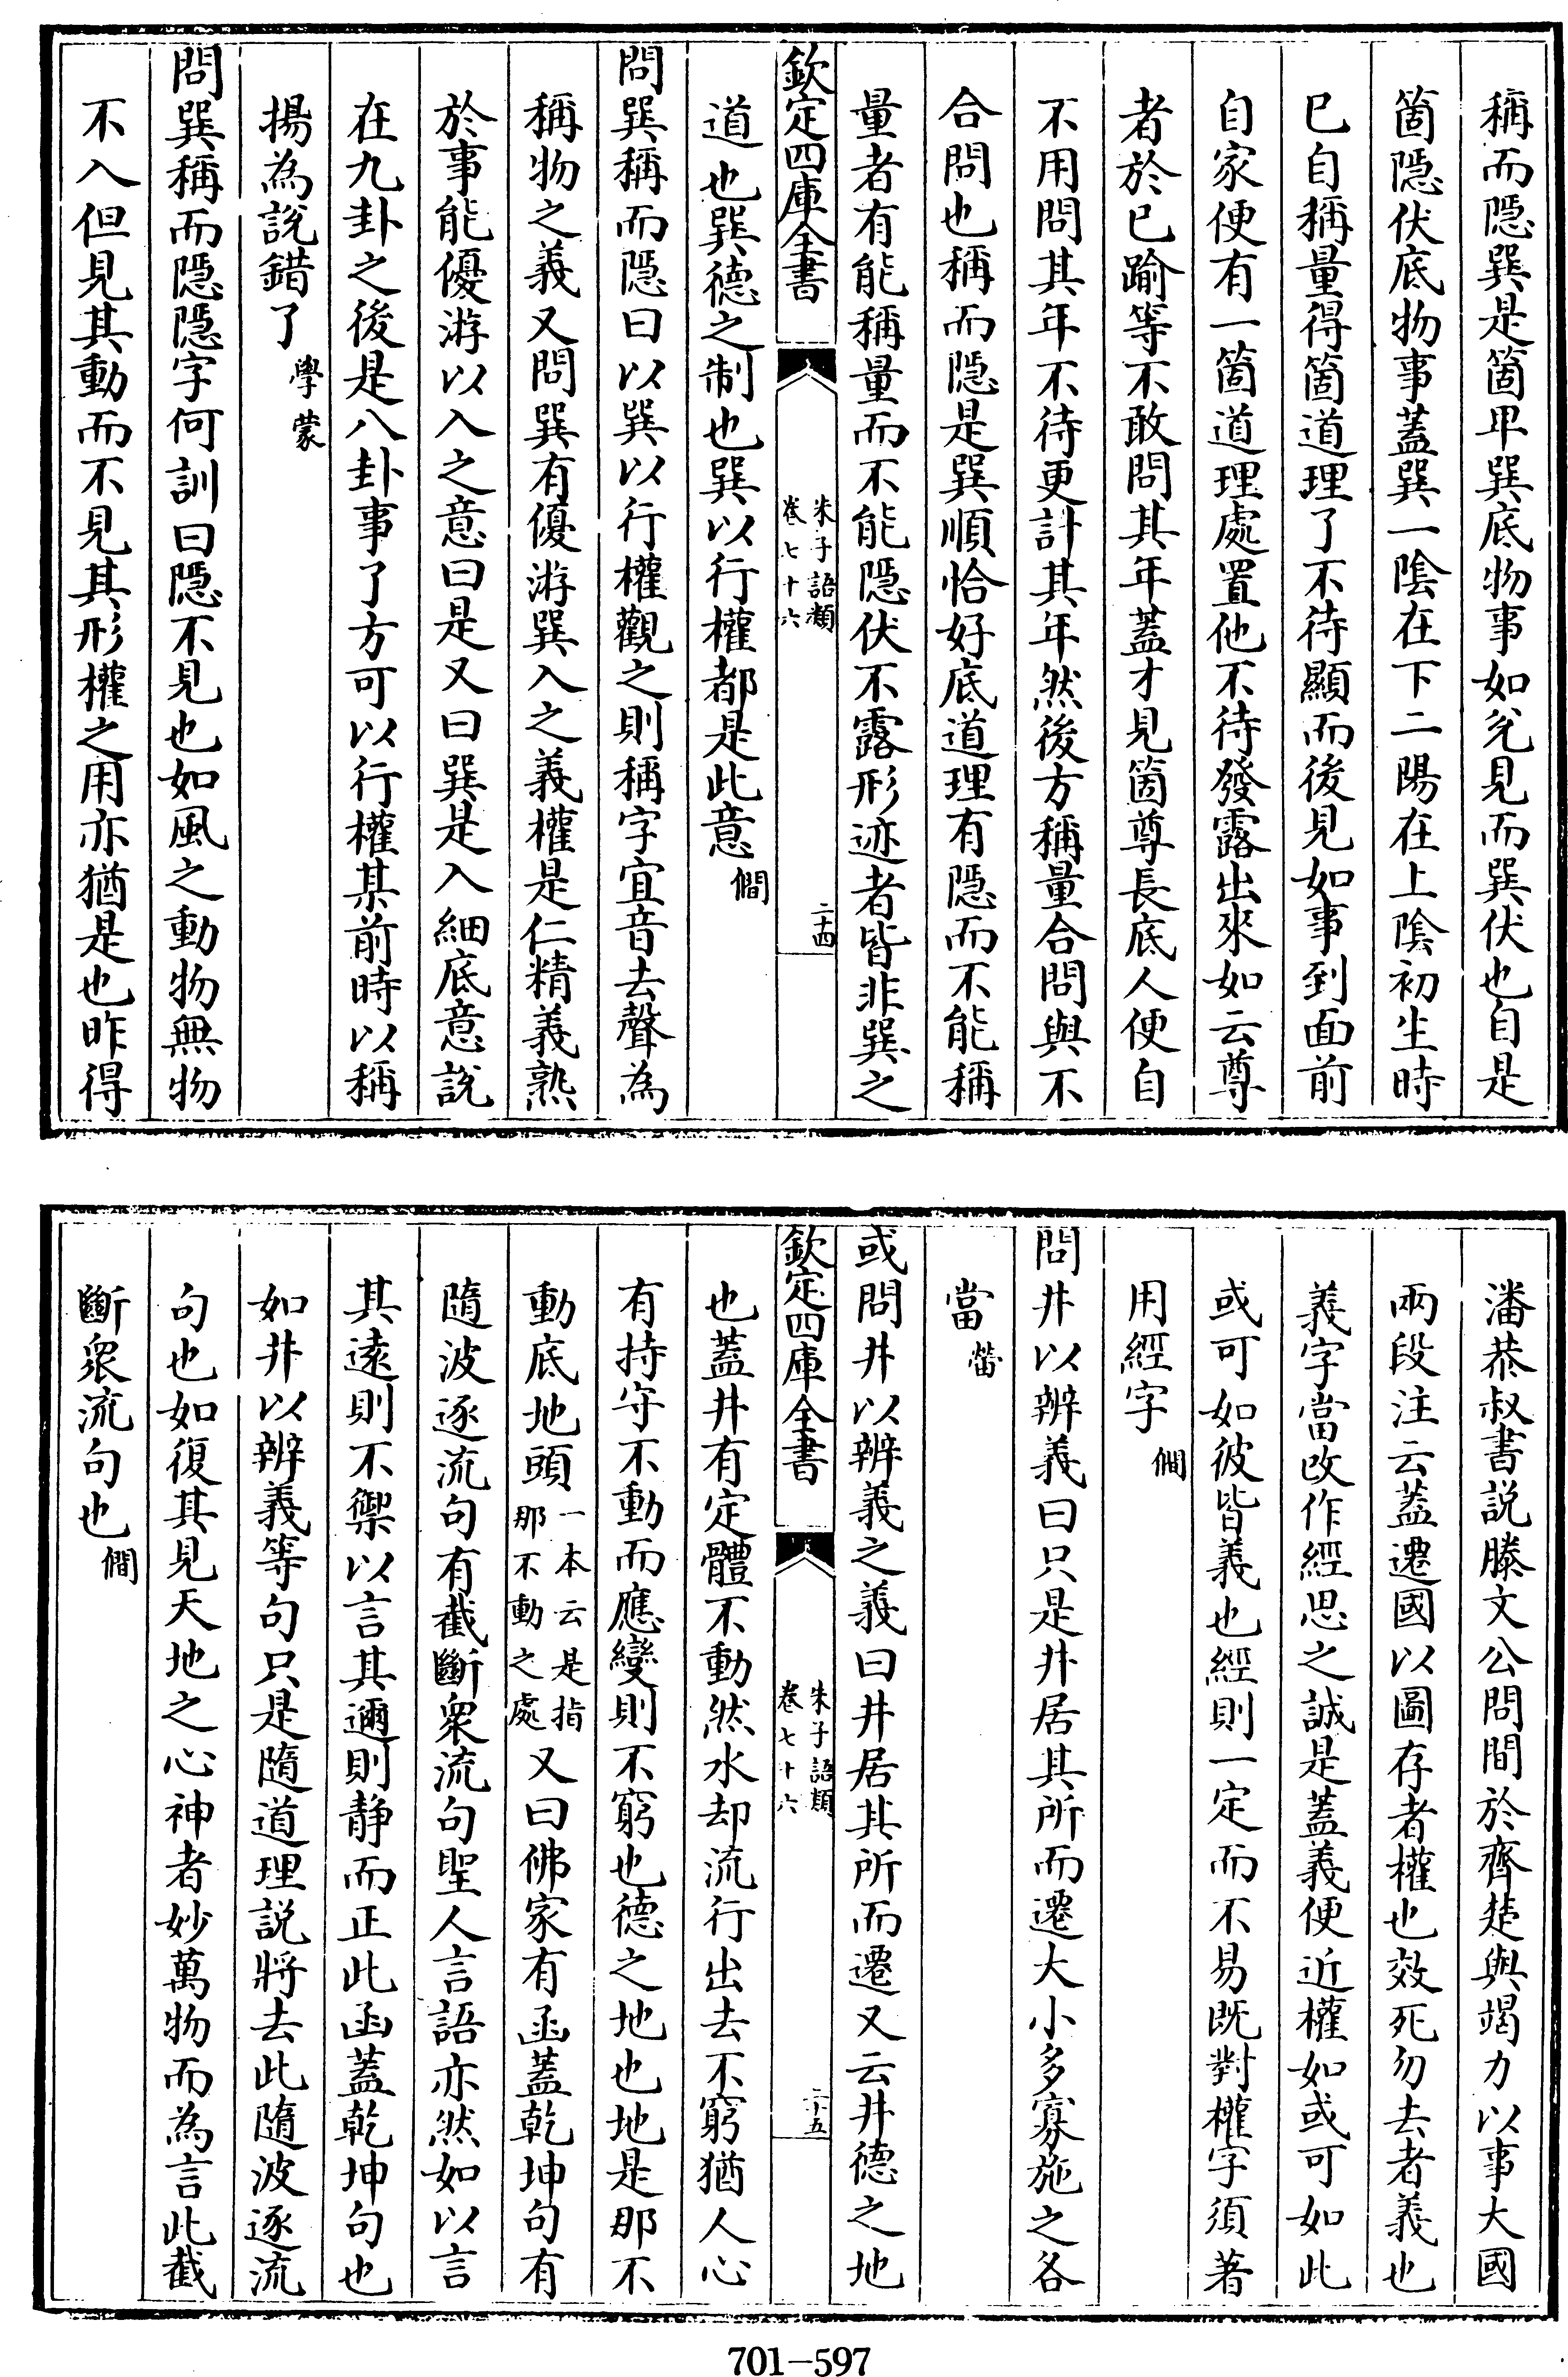 稱而隱巽是箇卑巽底物事如兊見而巽伏也自是
箇隱伏底物事蓋巽一陰在下二陽在上陰初生時
已自稱量得箇道理了不待顯而後見如事到面前
自家便有一箇道理處置他不待發露出來如云尊
者於已踰等不敢問其年蓋才見箇尊長底人便自
不用問其年不待更計其年然後方稱量合問與不
合問也稱而隱是巽順恰好底道理有隱而不能稱
量者有能稱量而不能隱伏不露形迹者皆非巽之
欽定四庫全書
朱子語類
卷七十六
二十四
道也巽德之制也巽以行權都是此意僩
問巽稱而隱曰以巽以行權觀之則稱字宜音去聲為
稱物之義又問巽有優游巽入之義權是仁精義熟
於事能優游以入之意曰是又曰巽是入細底意說
在九卦之後是八卦事了方可以行權某前時以稱
揚為說錯了學蒙
問巽稱而隱隱字何訓曰隱不見也如風之動物無物
不入但見其動而不見其形權之用亦猶是也昨得
潘恭叔書説滕文公問間於齊楚與竭力以事大國
兩段注云蓋遷國以圖存者權也效死勿去者義也
義字當改作經思之誠是蓋義便近權如或可如此
或可如彼皆義也經則一定而不易既對權字須著
用經字僩
問井以辨義曰只是井居其所而遷大小多寡施之各
當㽦
或問井以辨義之義曰井居其所而遷又云井德之地
欽定四庫全書
朱子語類
卷七十六
二十五
也蓋井有定體不動然水却流行出去不窮猶人心
有持守不動而應變則不窮也德之地也地是那不
動底地頭一本云是指那不動之處又曰佛家有函蓋乾坤句有
隨波逐流句有截斷衆流句聖人言語亦然如以言
其遠則不禦以言其邇則静而正此函蓋乾坤句也
如井以辨義等句只是隨道理説將去此隨波逐流
句也如復其見天地之心神者妙萬物而為言此截
斷衆流句也僩
701-597